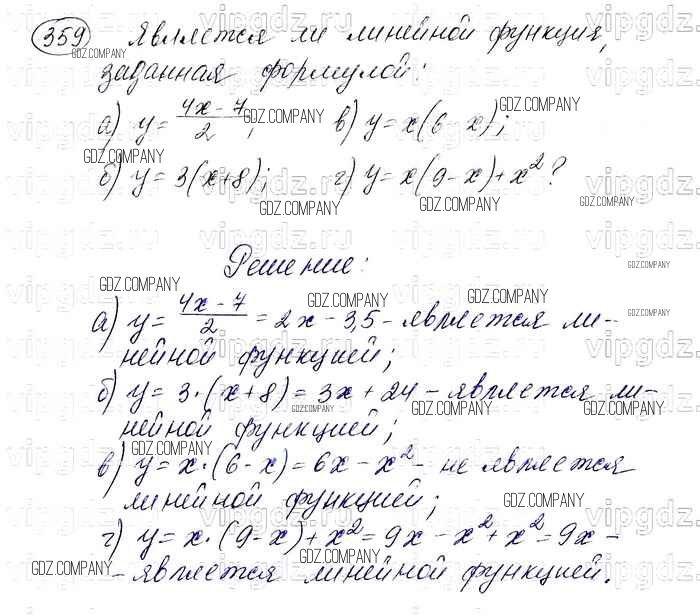 359 Является ли линейной функция,
заданная формулой:
а) y = (4x - 7)/2; в) y = x(6 - x);
б) y = 3(x+8); г) y = x(9-x)+x²?
Решение:
а) y = (4x - 7)/2 = 2x - 3,5 - является ли-
нейной функцией;
б) y = 3·(x+8) = 3x + 24 - является ли-
нейной функцией;
в) y = x·(6-x) = 6x - x² - не является
линейной функцией;
г) y = x·(9-x) + x² = 9x - x² + x² = 9x -
- является линейной функцией.
GDZ.COMPANY
vipgdz.ru